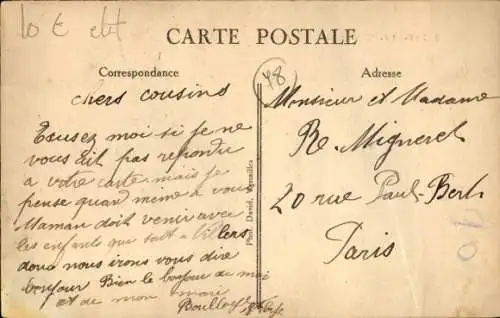 10 €
CARTE POSTALE
48
Correspondance
Adresse
chers cousins
Exusez moi si je ne
vous Eit pas repondu
a votre carte mais je
pense quand mime a vous
Maman doit venir avec
les enfants que sont a Villers
donc nous irons vous dire
bonjour Bien le bonjour du moi
et de mon mari
Phot. David, Versailles
Monsieur et Madame
Re. Migneret
20 rue Paul Bert
Paris
10